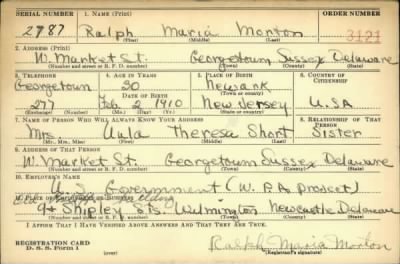 SERIAL NUMBER 1. NAME (Print) ORDER NUMBER
2787 Ralph Maria Morton 3121
(First) (Middle) (Last)
2. ADDRESS (Print)
W. Market St. Georgetown Sussex Delaware
(Number and street or R. F. D. number) (Town) (County) (State)
3. TELEPHONE 4. AGE IN YEARS 5. PLACE OF BIRTH 6. COUNTRY OF CITIZENSHIP
Georgetown 30 Newark
DATE OF BIRTH (Town or county)
277 Feb 2 1910 New Jersey U.S.A
(Exchange) (Number) (Mo.) (Day) (Yr.) (State or country)
7. NAME OF PERSON WHO WILL ALWAYS KNOW YOUR ADDRESS 8. RELATIONSHIP OF THAT PERSON
Mrs. Theresa Short Sister
(Mr., Mrs., Miss) (First) (Middle) (Last)
9. ADDRESS OF THAT PERSON
W. Market St. Georgetown Sussex Delaware
(Number and street or R. F. D. number) (Town) (County) (State)
10. EMPLOYER'S NAME
U.S. Government (W.P.A project)
11. PLACE OF EMPLOYMENT OR BUSINESS
Old
9th Shipley Sts. Wilmington Newcastle Delaware
(Number and street or R. F. D. number) (Town) (County) (State)
I AFFIRM THAT I HAVE VERIFIED ABOVE ANSWERS AND THAT THEY ARE TRUE.
REGISTRATION CARD
D. S. S. Form 1 (over) Ralph Maria Morton
(Registrant's signature)